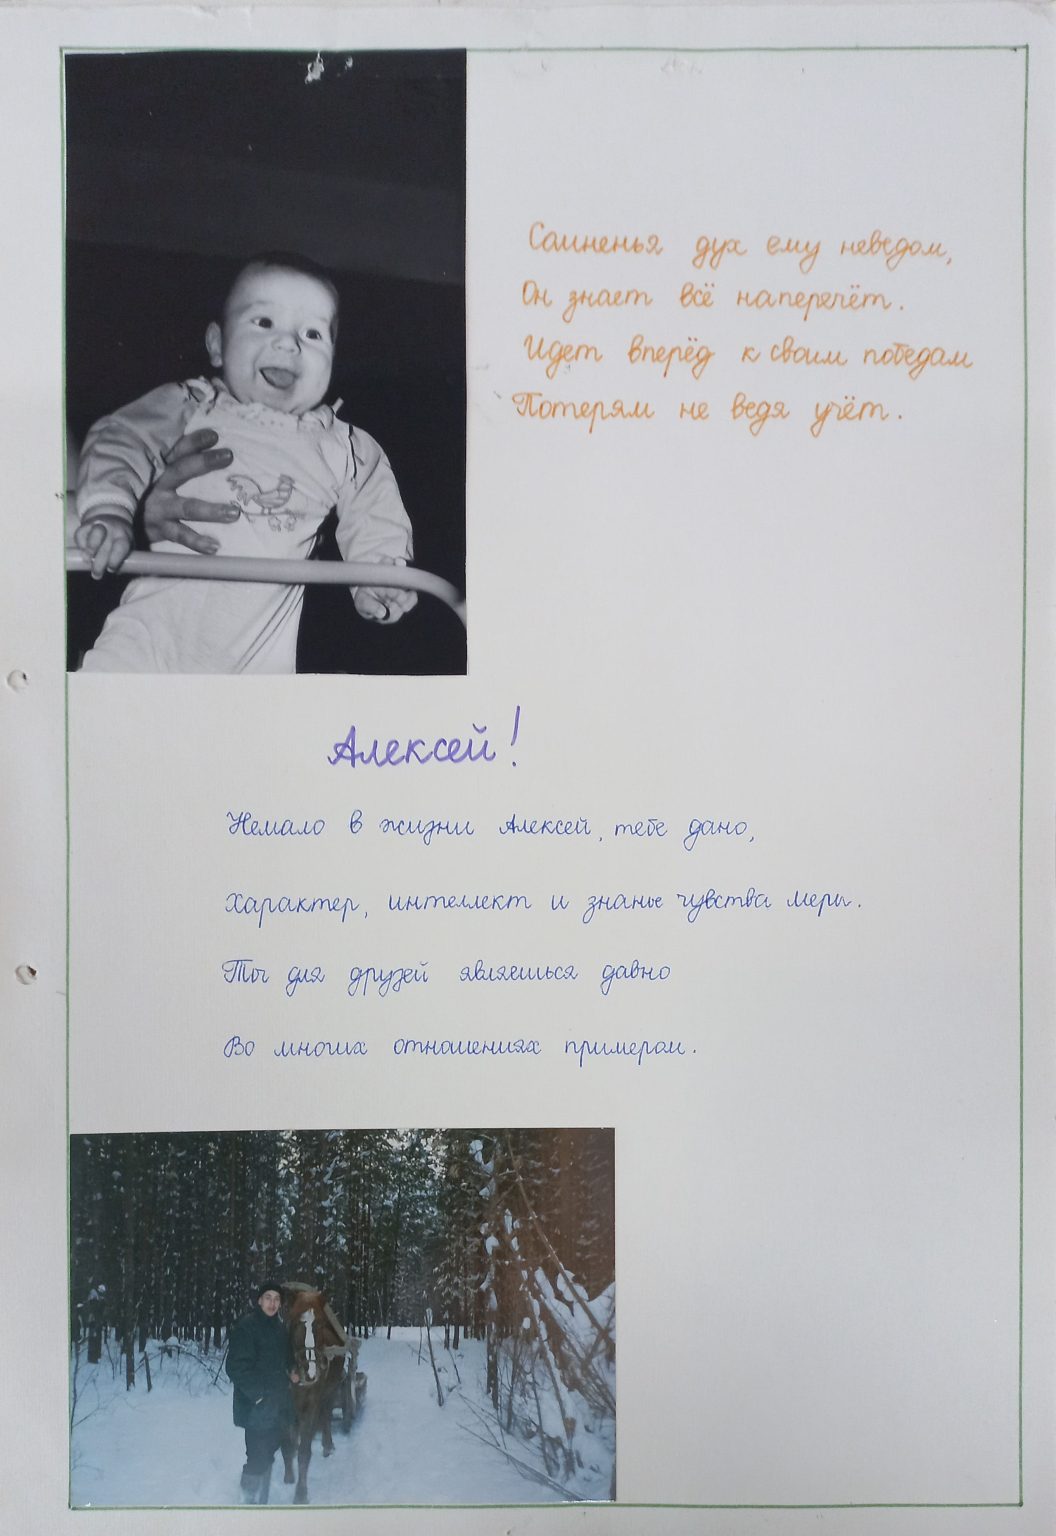 Сомненья дух ему неведом,
Он знает всё наперечёт.
Идет вперёд к своим победам
Потерям не ведя учёт.
Алексей!
Немало в жизни Алексей, тебе дано,
Характер, интеллект и знанье чувства меры.
Ты для друзей являешься давно
Во многих отношениях примером.